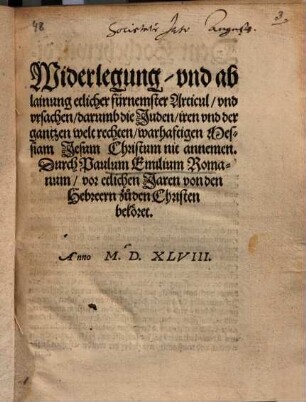 48 Societatis Jesu Augustæ. 3.
Widerlegung / vnd ab
lainung etlicher fürnemster Articul / vnd
vrsachen / darumb die Juden / iren vnd der
gantzen welt rechten / warhafftigen Mes-
siam Jesum Christum nit annemen.
Durch Paulum Emilium Roma-
num / vor etlichen Jaren von den
Hebreern zů den Christen
beköret.
Anno M. D. XLVIII.